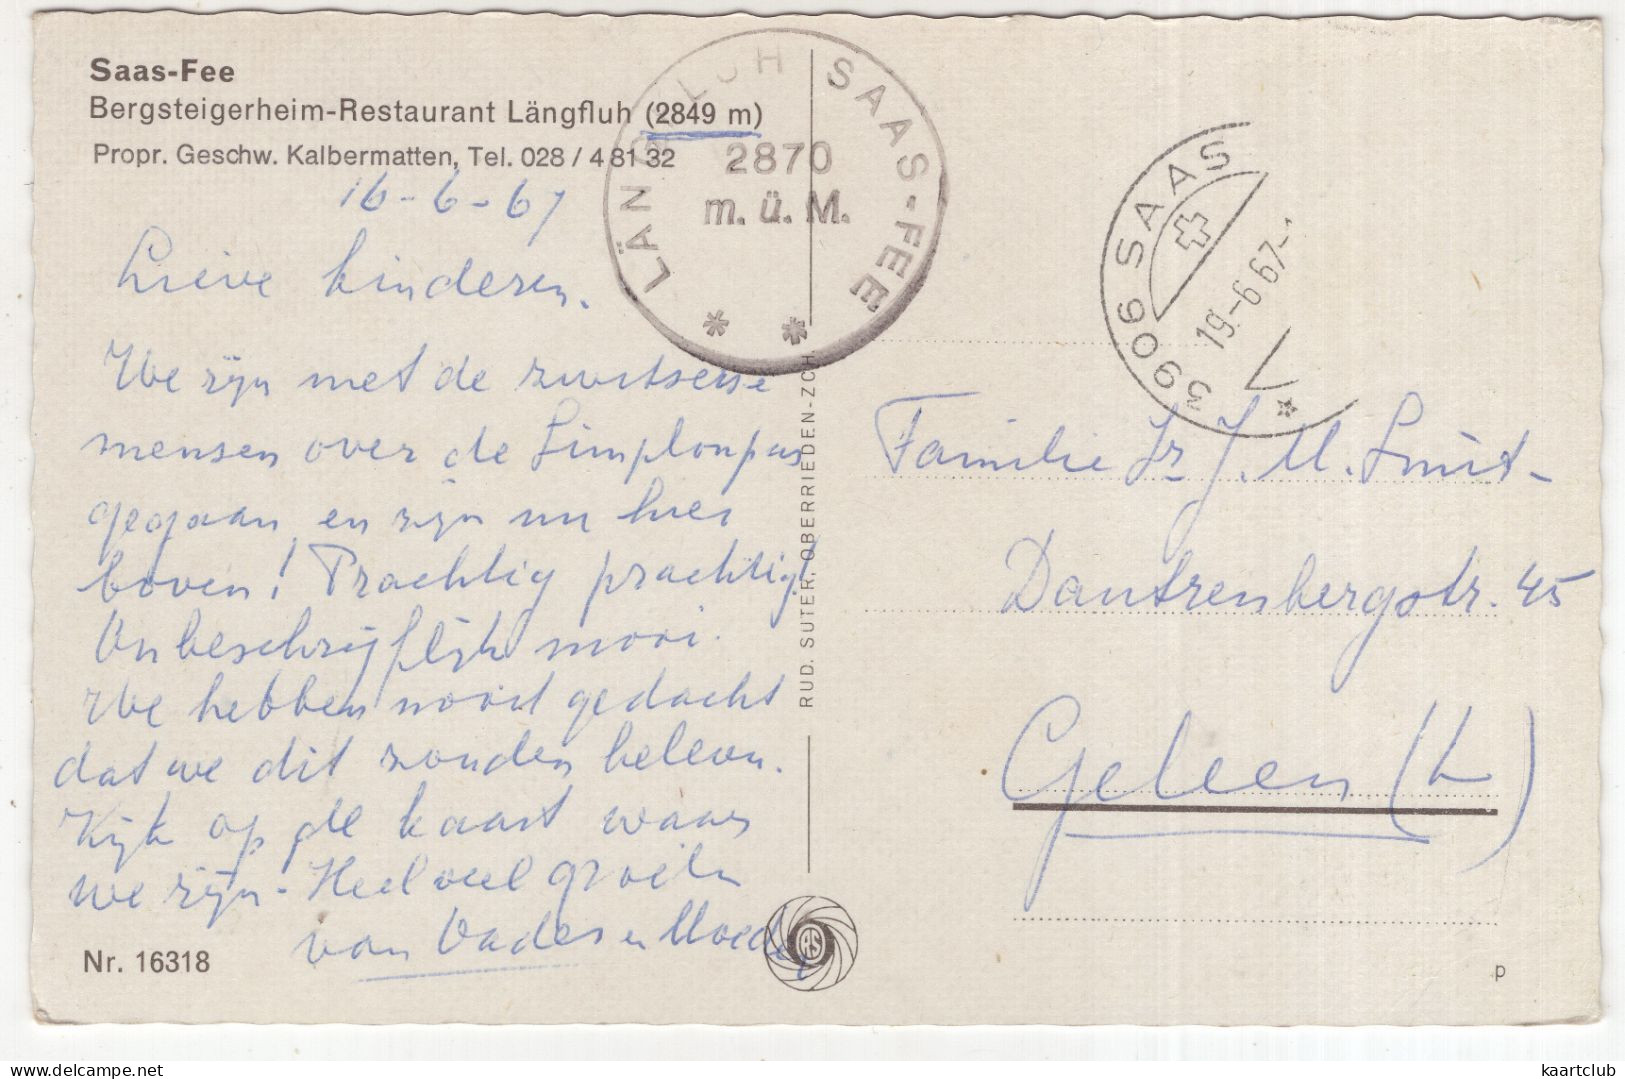 Saas-Fee
Bergsteigerheim-Restaurant Längfluh (2849 m)
Propr. Geschw. Kalbermatten, Tel. 028 / 4 81 32
LÄNGFLUH SAAS-FEE
2870
m. ü. M.
* *
3906 SAAS
19.-6 67-
16-6-67
Lieve kinderen.
We zijn met de zwitserse
mensen over de Simplonpas
gegaan en zijn nu hier
boven! Prachtig prachtig!
Onbeschrijflijk mooi.
We hebben nooit gedacht
dat we dit zouden beleven.
Kijk op de kaart waar
we zijn. Heel veel groeten
van Vader en Moeder
Familie Jr J. M. Smit-
Dautzenbergstr. 45
Geleen (L)
RUD. SUTER, OBERRIEDEN-ZCH.
RS
Nr. 16318
p
delcampe.net
kaartclub